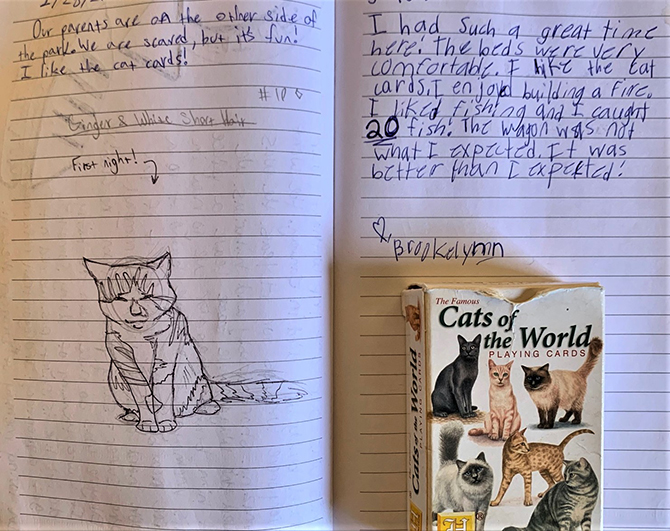 Our parents are on the other side of
the park. We are scared, but it's fun!
I like the cat cards!
Ginger & White Short Hair
First night!
I had such a great time
here! The beds were very
comfortable. I like the cat
cards. I enjoyd building a fire.
I liked fishing and I caught
20 fish! The wagon was not
what I expected. It was
better than I expected!
Brookelynn
The Famous
Cats of
the World
PLAYING CARDS
Cats of the World
PLAYING CARDS